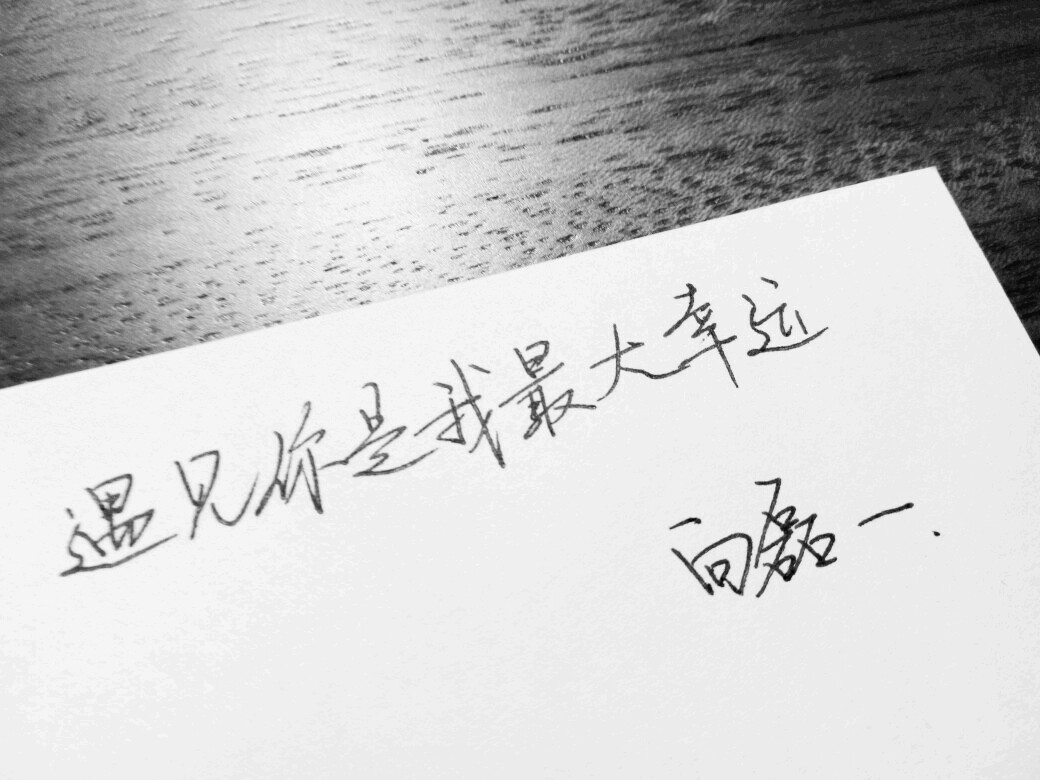 遇见你是我最大幸运
向磊一.